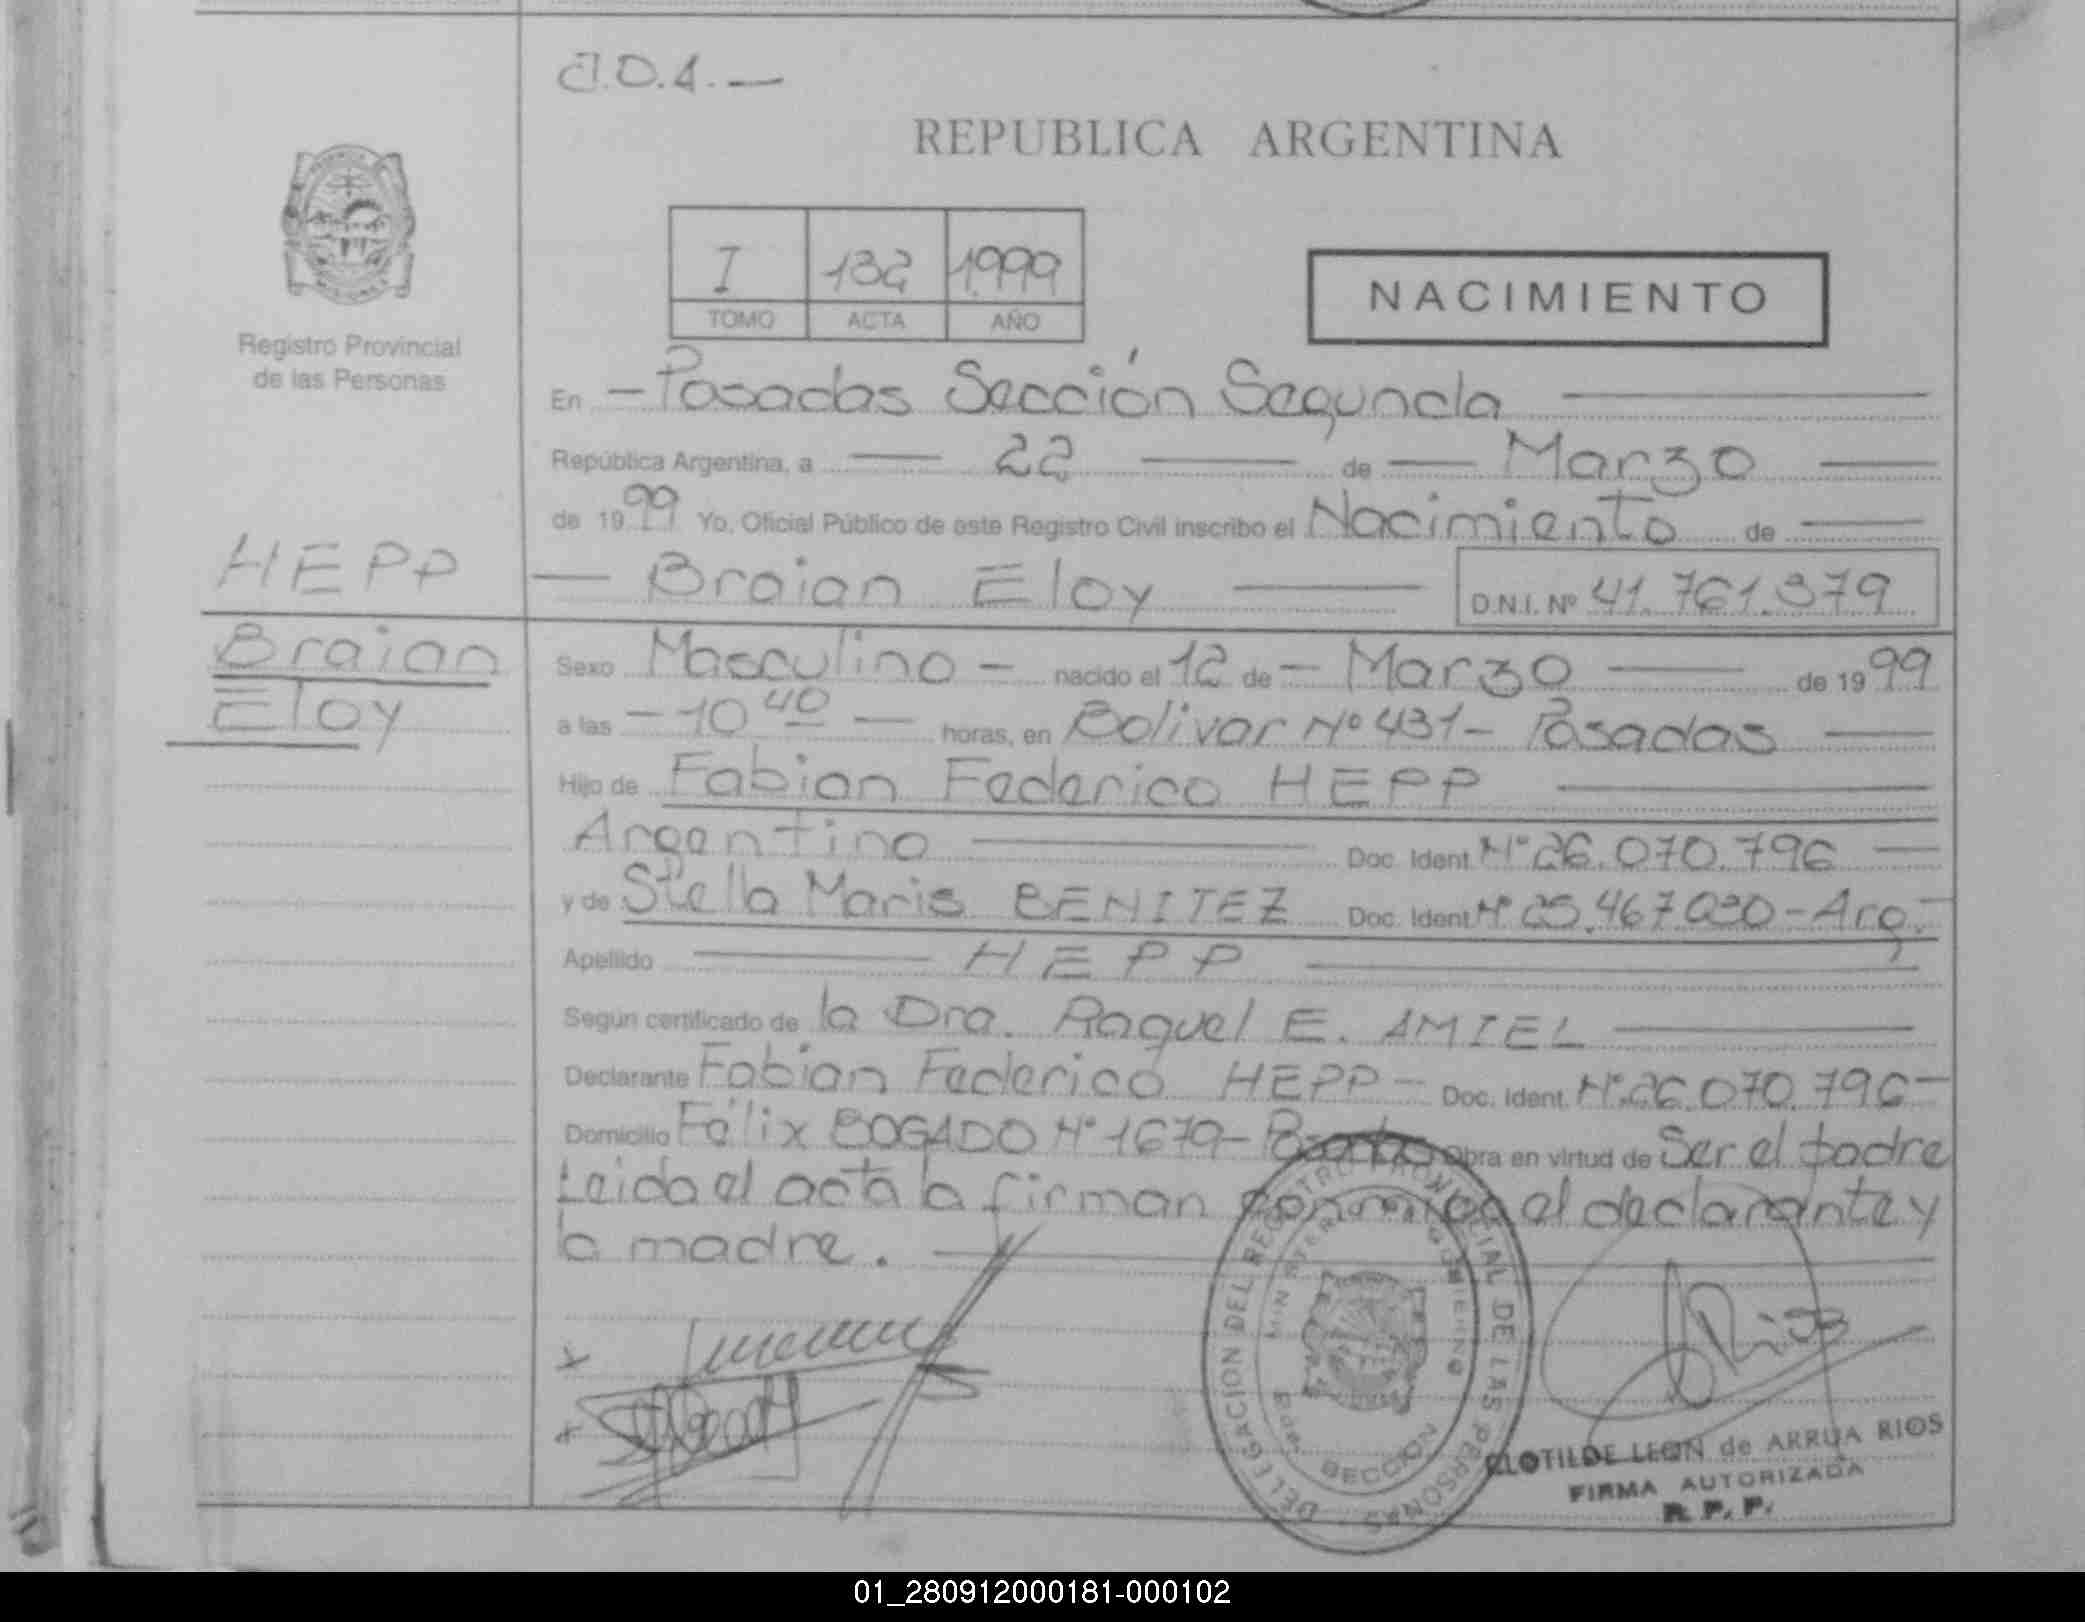 J.O.A.—
REPUBLICA ARGENTINA
I 132 1999
TOMO ACTA AÑO
NACIMIENTO
Registro Provincial
de las Personas
En — Posadas Sección Segunda —
República Argentina, a — 22 — de — Marzo —
de 1999 Yo, Oficial Público de este Registro Civil inscribo el Nacimiento de —
HEPP
— Braian Eloy — D.N.I. Nº 41.761.379
Braian
Eloy
Sexo Masculino — nacido el 12 de — Marzo — de 1999
a las — 10 40 — horas, en Bolivar Nº 431 — Posadas —
Hijo de Fabian Federico HEPP —
Argentino — Doc. Ident. Nº 26.070.796 —
y de Stella Maris BENITEZ Doc. Ident. Nº 25.467.020 - Arg. —
Apellido — HEPP —
Según certificado de la Dra. Raquel E. AMIEL —
Declarante Fabian Federico HEPP — Doc. Ident. Nº 26.070.796 —
Domicilio Félix BOGADO Nº 1679 - Posadas Obra en virtud de Ser el padre
Leida el acta la firman conmigo el declarante y
la madre. —
DELEGACION DEL REGISTRO PROVINCIAL DE LAS PERSONAS
MINISTERIO DE GOBIERNO
SECCION
CLOTILDE LEON de ARRUA RIOS
FIRMA AUTORIZADA
R. P. P.
01_280912000181-000102